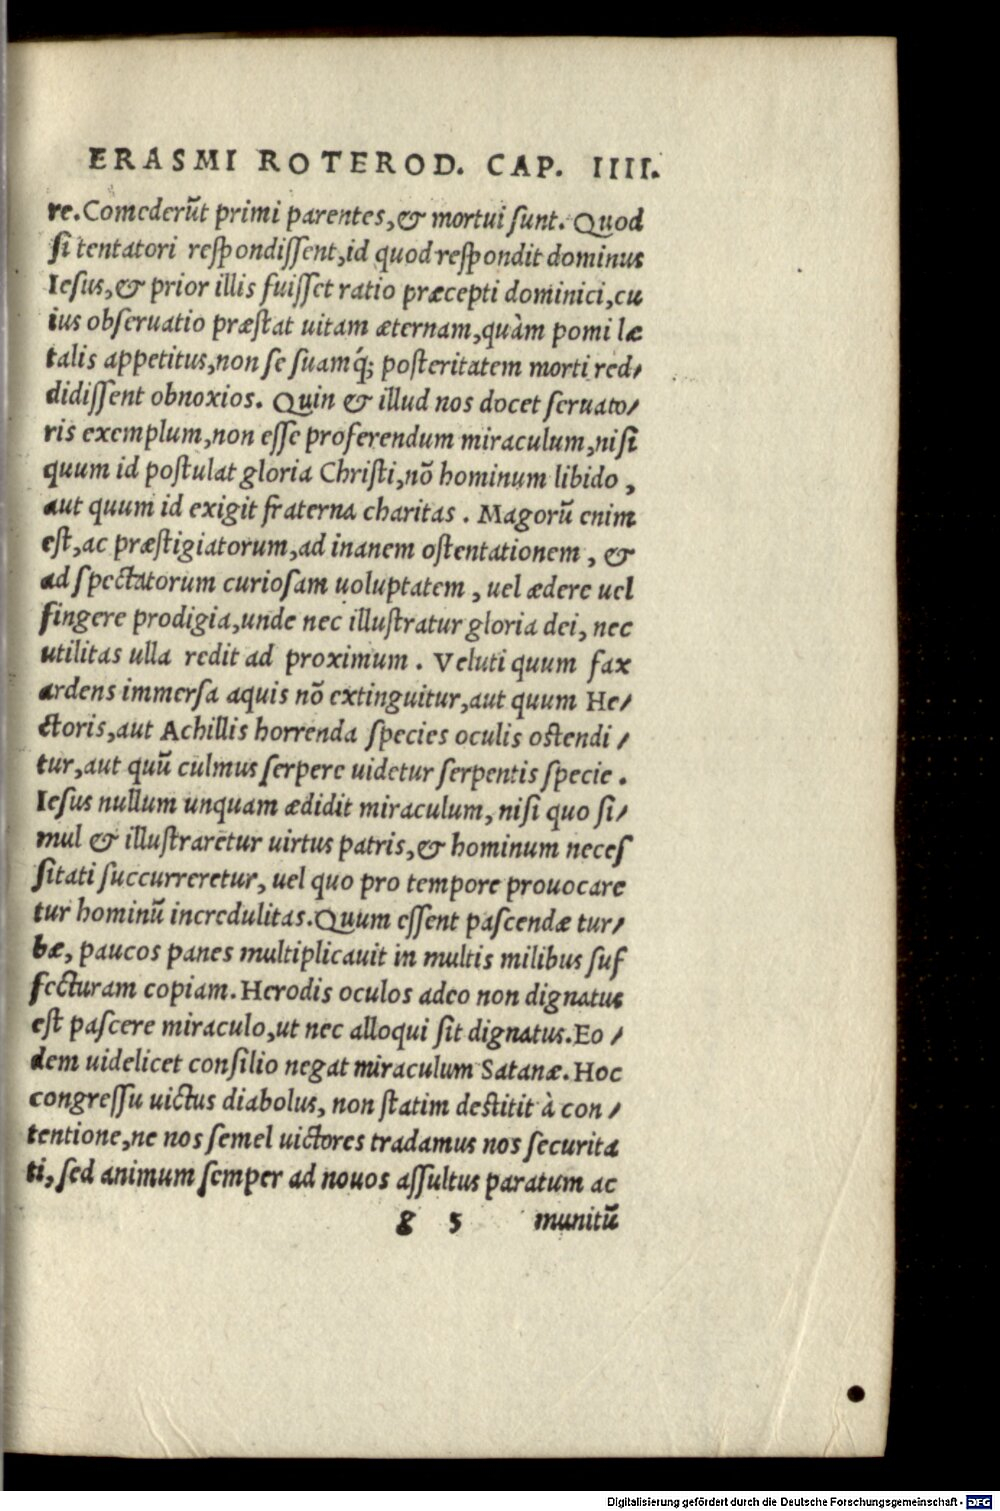 ERASMI ROTEROD. CAP. IIII.
re. Comederũt primi parentes, & mortui ſunt. Quod
ſi tentatori reſpondiſſent, id quod reſpondit dominus
Ieſus, & prior illis fuiſſet ratio præcepti dominici, cu
ius obſeruatio præſtat uitam æternam, quàm pomi læ
talis appetitus, non ſe ſuamq́; poſteritatem morti red/
didiſſent obnoxios. Quin & illud nos docet ſeruato/
ris exemplum, non eſſe proferendum miraculum, niſi
quum id poſtulat gloria Chriſti, nõ hominum libido,
aut quum id exigit fraterna charitas. Magorũ enim
eſt, ac præſtigiatorum, ad inanem oſtentationem, &
ad ſpectatorum curioſam uoluptatem, uel ædere uel
fingere prodigia, unde nec illuſtratur gloria dei, nec
utilitas ulla redit ad proximum. Veluti quum fax
ardens immerſa aquis nõ extinguitur, aut quum He/
ctoris, aut Achillis horrenda ſpecies oculis oſtendi/
tur, aut quũ culmus ſerpere uidetur ſerpentis ſpecie.
Ieſus nullum unquam ædidit miraculum, niſi quo ſi/
mul & illuſtraretur uirtus patris, & hominum neceſ
ſitati ſuccurreretur, uel quo pro tempore prouocare
tur hominũ incredulitas. Quum eſſent paſcendæ tur/
bæ, paucos panes multiplicauit in multis milibus ſuf
fecturam copiam. Herodis oculos adeo non dignatus
eſt paſcere miraculo, ut nec alloqui ſit dignatus. Eo/
dem uidelicet conſilio negat miraculum Satanæ. Hoc
congreſſu uictus diabolus, non ſtatim deſtitit à con/
tentione, ne nos ſemel uictores tradamus nos ſecurita
ti, ſed animum ſemper ad nouos aſſultus paratum ac
g 5 munitũ
Digitalisierung gefördert durch die Deutsche Forschungsgemeinschaft - DFG